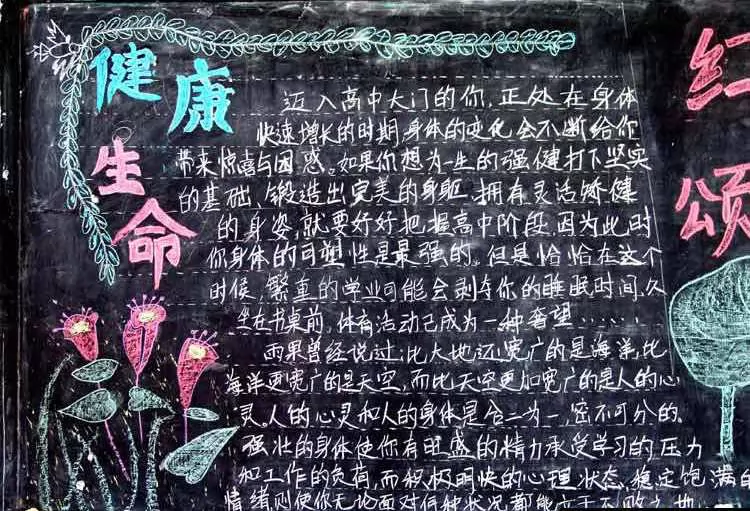 健康
生命
迈入高中大门的你,正处在身体
快速增长的时期,身体的变化会不断给你
带来惊喜与困惑。如果你想为一生的强健打下坚实
的基础、锻造出完美的身躯、拥有灵活矫健
的身姿,就要好好把握高中阶段,因为此时
你身体的可塑性是最强的。但是恰恰在这个
时候,繁重的学业可能会剥夺你的睡眠时间,久
坐在书桌前,体育活动已成为一种奢望……
雨果曾经说过:比大地还宽广的是海洋,比
海洋更宽广的是天空,而比天空更加宽广的是人的心
灵。人的心灵和人的身体是合二为一,密不可分的。
强壮的身体使你有旺盛的精力承受学习的压力
和工作的负荷,而积极明快的心理状态,稳定饱满的
情绪则使你无论面对何种状况都能立于不败之地
红
颂